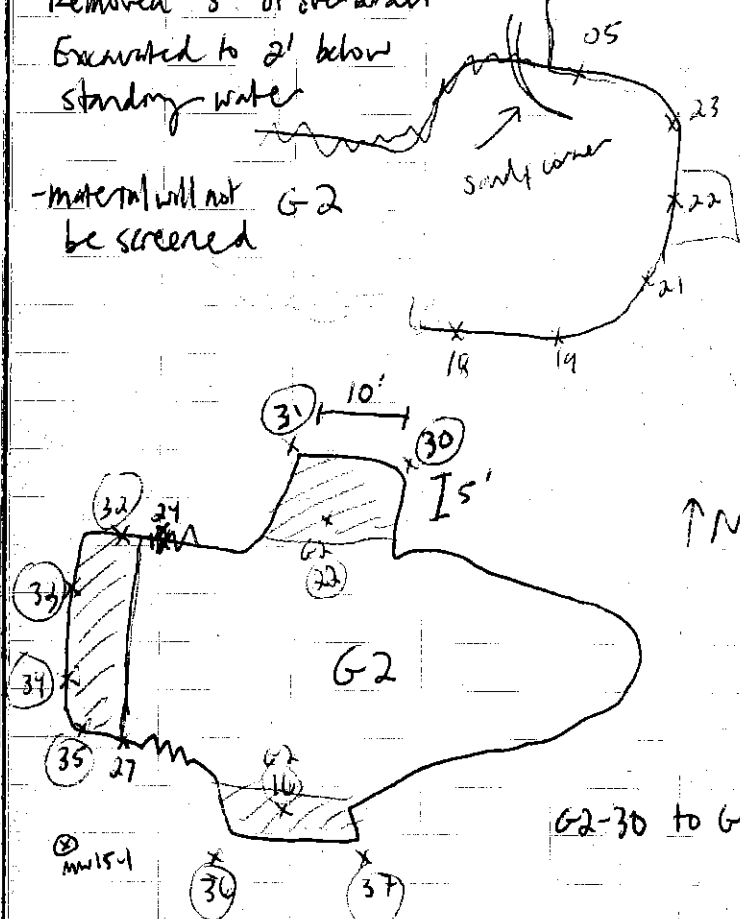 Removed 3' of overburden
Excavated to 2' below
standing water
-material will not
be screened
G2
sandy corner
05
23
22
21
18
19
31
10'
30
5'
32
24
G2
22
↑N
33
34
G2
35
27
G2
16
G2-30 to G
MW15-1
36
37